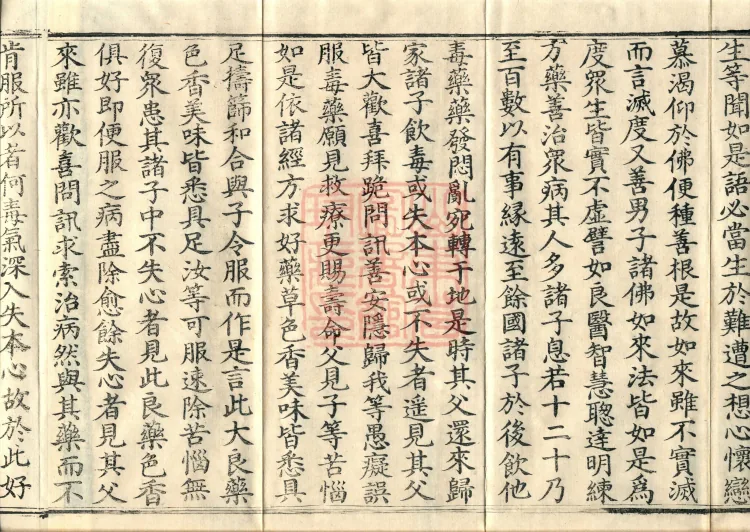 生等聞如是語必當生於難遭之想心懷戀
慕渴仰於佛便種善根是故如來雖不實滅
而言滅度又善男子諸佛如來法皆如是爲
度衆生皆實不虛譬如良醫智慧聰達明練
方藥善治衆病其人多諸子息若十二十乃
至百數以有事緣遠至餘國諸子於後飲他
毒藥藥發悶亂宛轉于地是時其父還來歸
家諸子飲毒或失本心或不失者遙見其父
皆大歡喜拜跪問訊善安隱歸我等愚癡誤
服毒藥願見救療更賜壽命父見子等苦惱
如是依諸經方求好藥草色香美味皆悉具
足擣篩和合與子令服而作是言此大良藥
色香美味皆悉具足汝等可服速除苦惱無
復衆患其諸子中不失心者見此良藥色香
俱好即便服之病盡除愈餘失心者見其父
來雖亦歡喜問訊求索治病然與其藥而不
肯服所以者何毒氣深入失本心故於此好